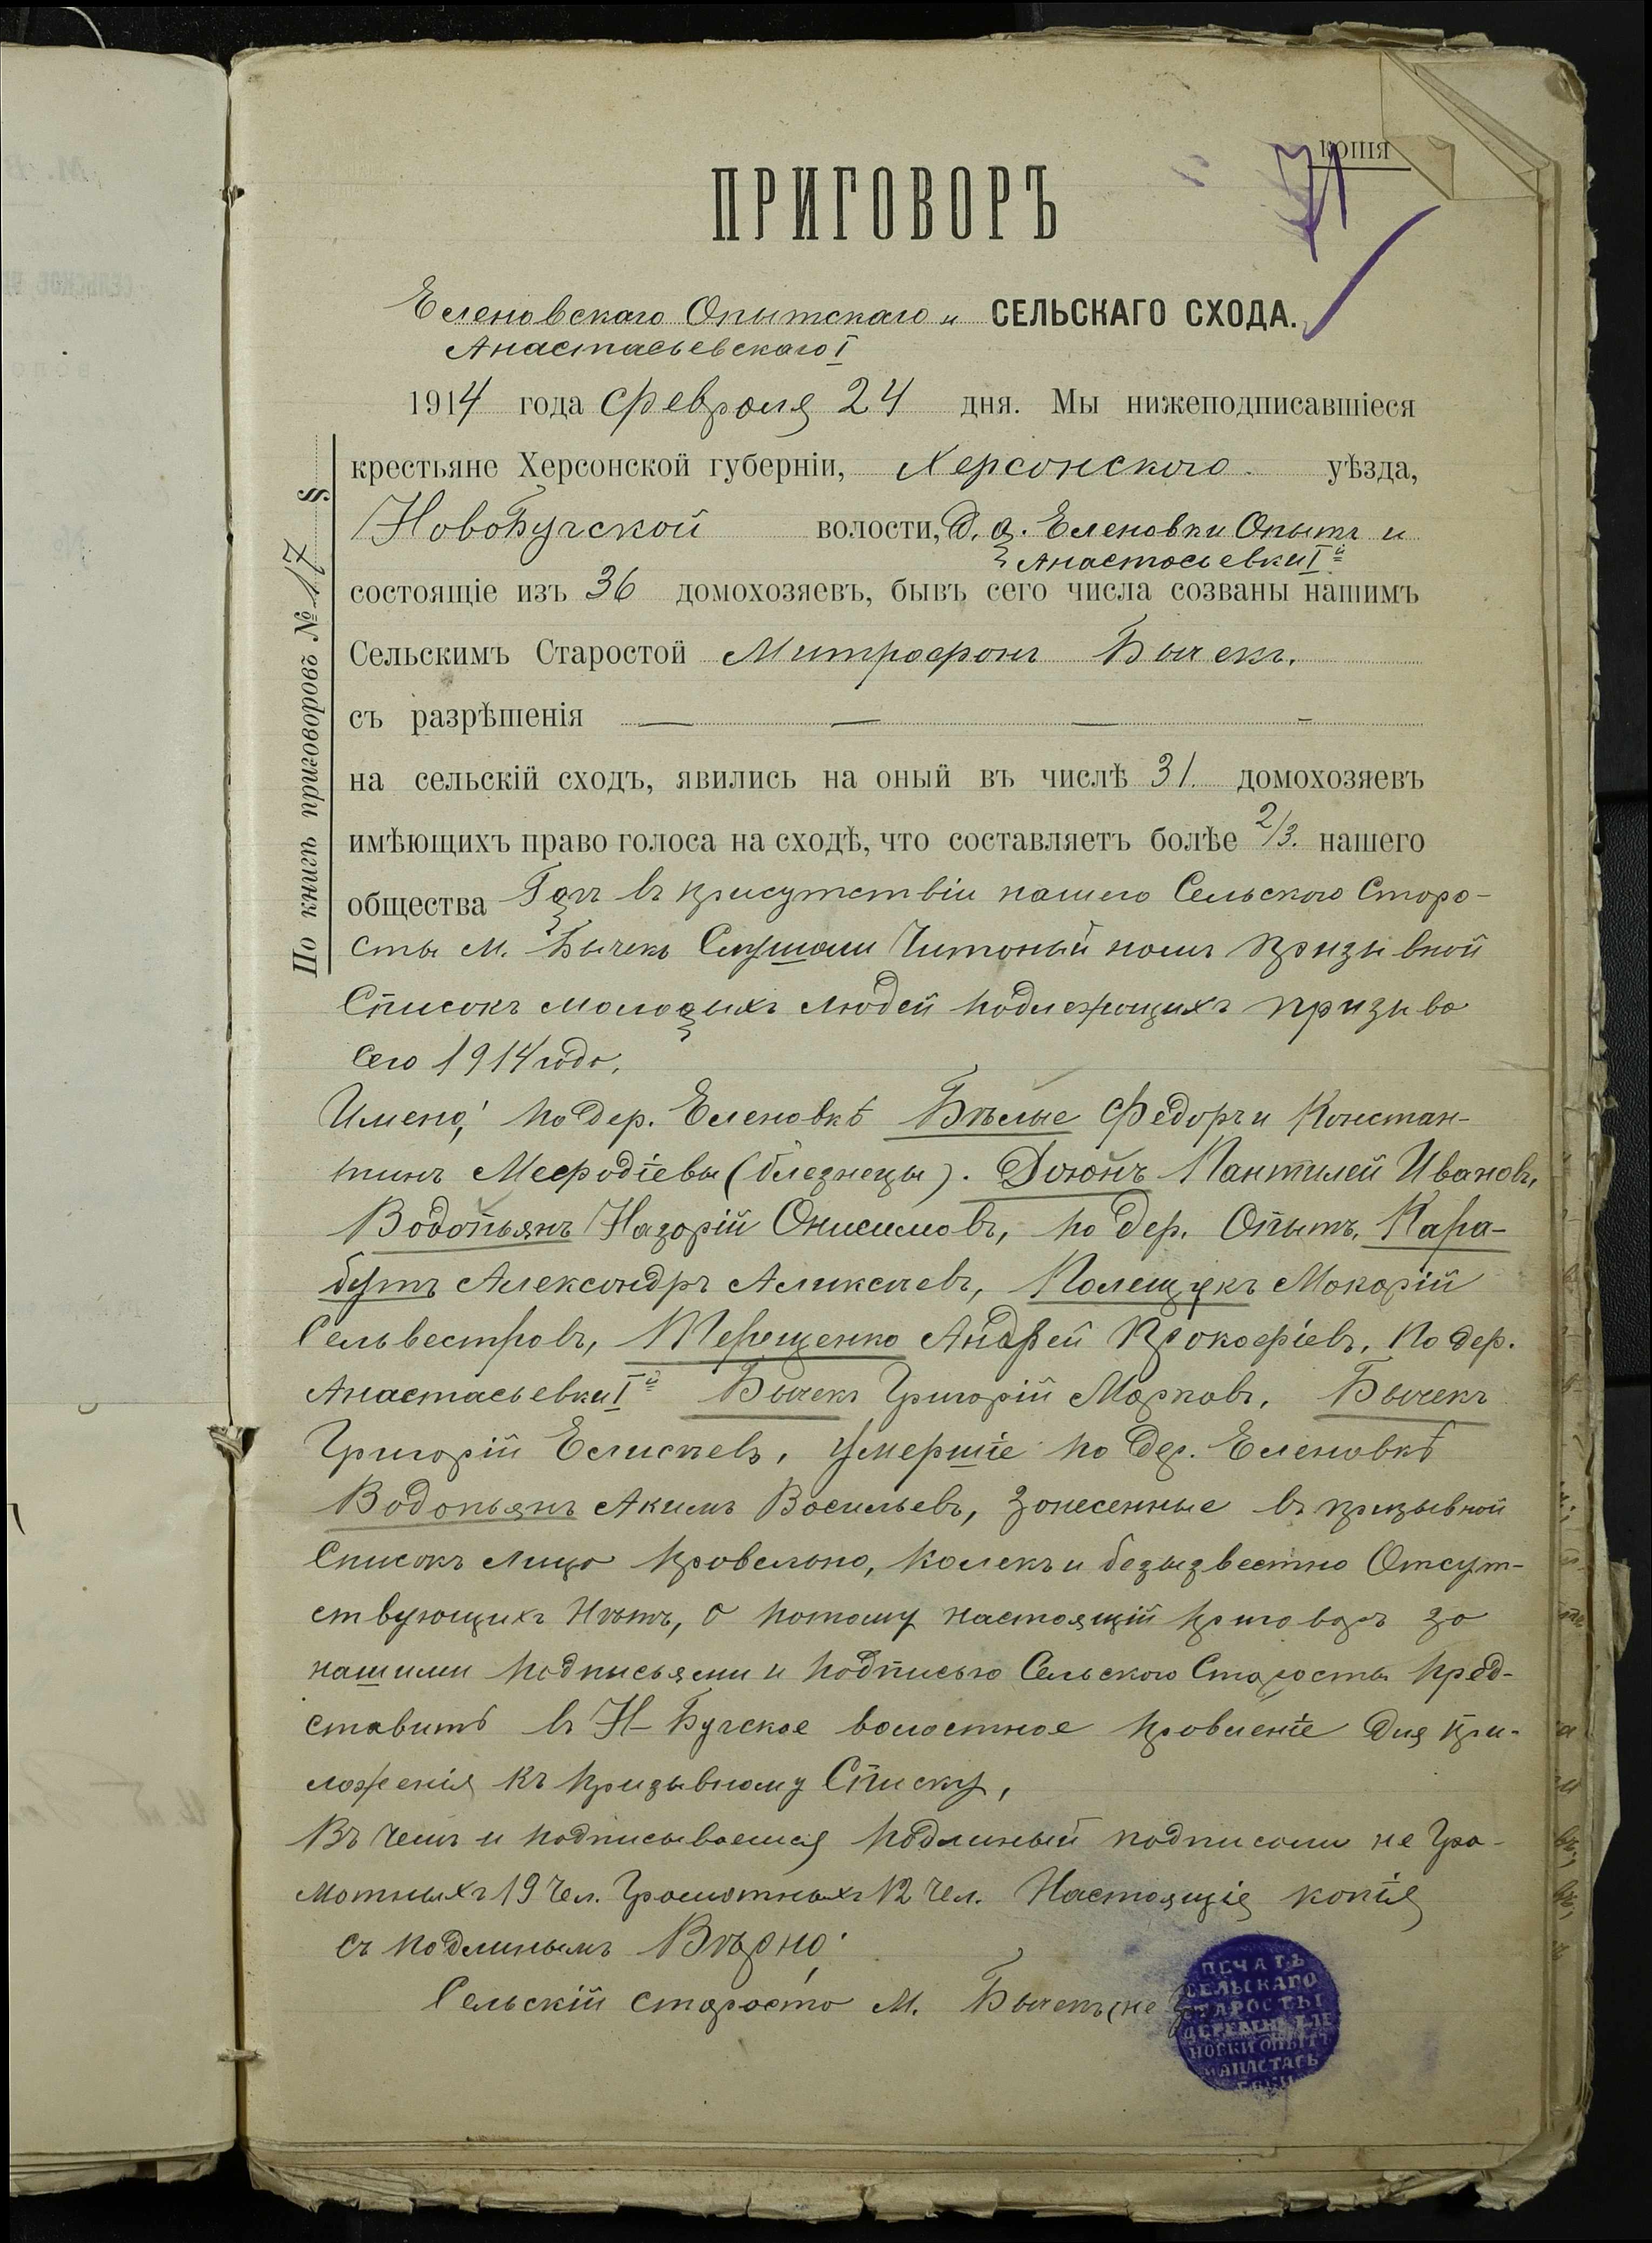 копія
71
ПРИГОВОРЪ
Еленовскаго Опытскаго и СЕЛЬСКАГО СХОДА.
Анастасьевскаго I
1914 года Февраля 24 дня. Мы нижеподписавшіеся
крестьяне Херсонской губерніи, Херсонскаго уѣзда,
НовоБугской волости, д. д. Еленовки Опытъ и
Анастасьевки I й
состоящіе изъ 36 домохозяевъ, бывъ сего числа созваны нашимъ
Сельскимъ Старостой Митрофонъ Бычекъ.
съ разрѣшенія — — — -
на сельскій сходъ, явились на оный въ числѣ 31. домохозяевъ
имѣющихъ право голоса на сходѣ, что составляетъ болѣе 2/3. нашего
общества въ присутствіи нашего Сельского Старо-
сты М. Бычекъ Слушали Читоный намъ призывной
Списокъ молодыхъ людей подлежощихъ призыва
Сего 1914 года,
Имено; по дер. Еленовкѣ Бѣлые Федоръ и Констан-
тинъ Мефодіевы (близнецы). Доюнъ Пантилей Ивановъ,
Водопьянъ Назорій Онисимовъ, по дер. Опытъ, Кара-
бутъ Александръ Аликсѣевъ, Полещукъ Мокорій
Сельвестровъ, Терещенко Андрей Прокофіевъ, По дер.
Анастасьевки I й Бычекъ Григорій Марковъ, Бычекъ
Григорій Елисѣевъ, Умершіе по дер. Еленовкѣ
Водопьянъ Акимъ Васильевъ, Зонесенные въ призывной
Списокъ лица провельно, Колекъ и безызвестно Отсут-
ствующихъ Нѣтъ, о потому настоящій приговоръ за
нашими подписьями и подписью Сельского Старосты пред-
ставить въ Н-Бугское волостное провленіе для при-
ложенія къ призывному Списку,
Въ чемъ и подписываемся подлиный подписали не Гра-
мотныхъ 19 Чел. Громотныхъ 12 Чел. Настоящія копія
съ подлинымъ Вѣрно;
Сельскій староста М. Бычекъ (не
ПЕЧАТЬ
СЕЛЬСКАГО
СТАРОСТЫ
ДЕРЕВЕНЬ ЕЛЕ
НОВКИ ОПЫТЪ
И АНАСТАСЬ
ЕВКИ
По книгѣ приговоровъ № 17 §